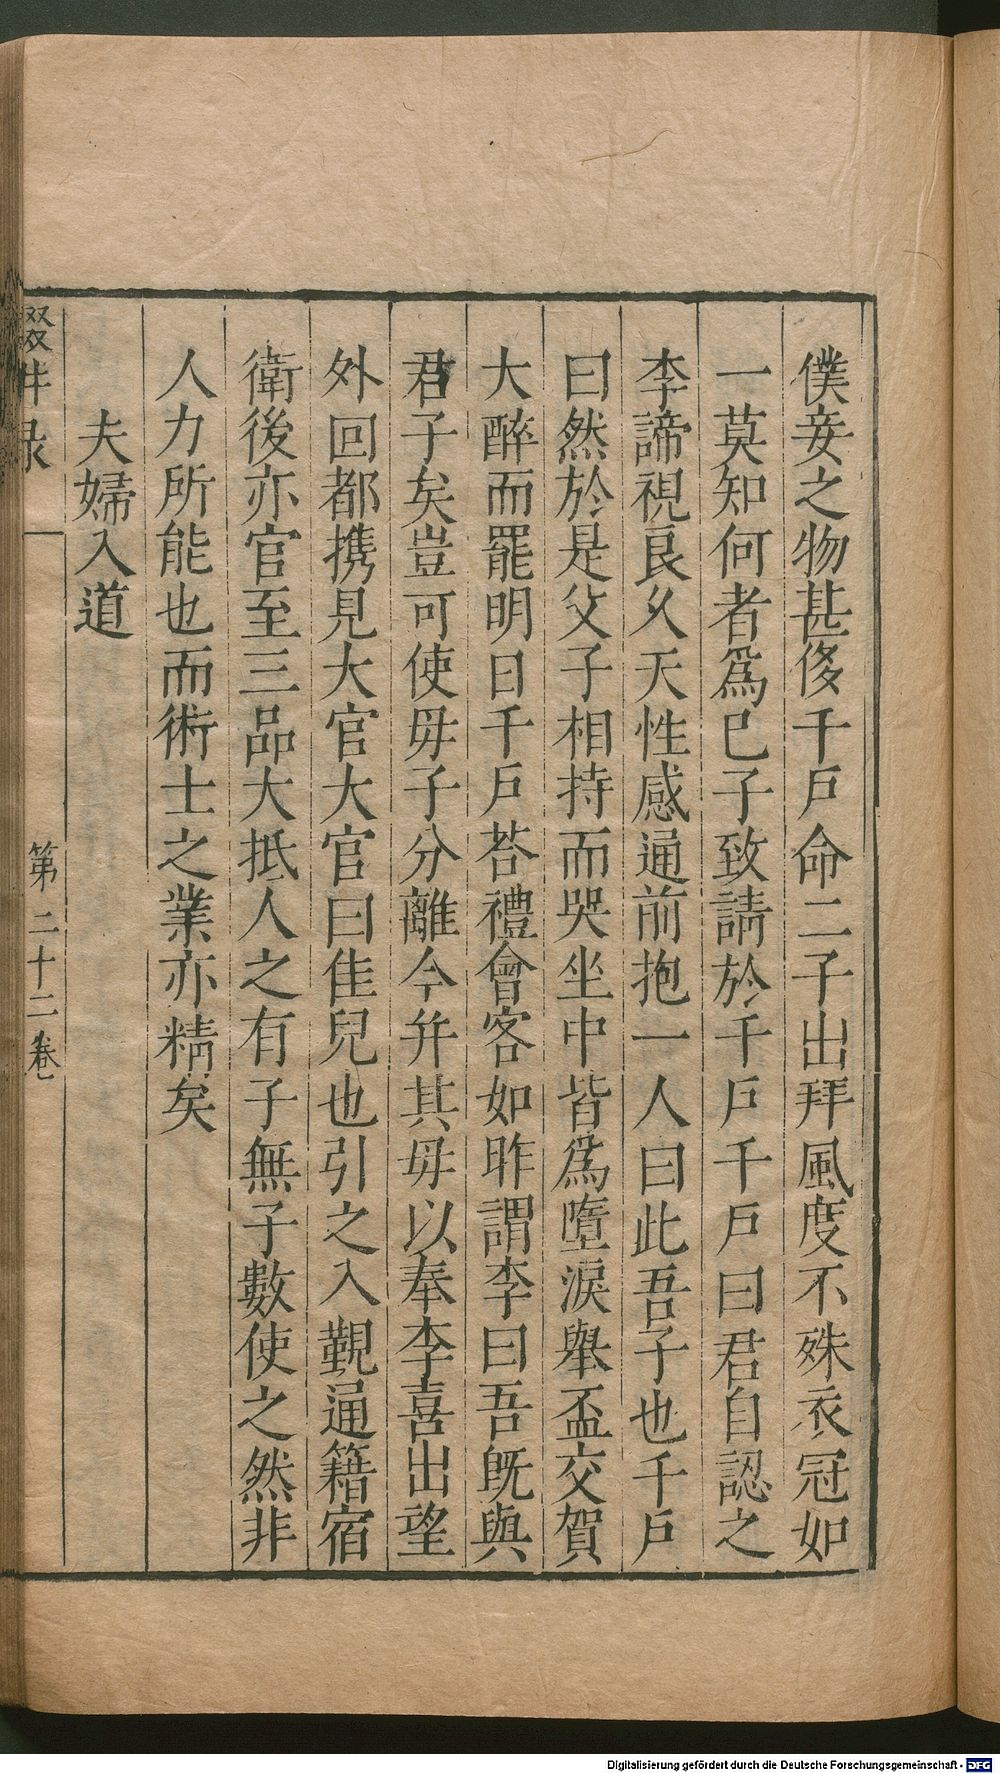 僕妾之物甚侈千戶命二子出拜風度不殊衣冠如
一莫知何者爲己子致請於千戶千戶曰君自認之
李諦視良久天性感通前抱一人曰此吾子也千戶
曰然於是父子相持而哭坐中皆爲墮淚舉盃交賀
大醉而罷明日千戶荅禮會客如昨謂李曰吾旣與
君子矣豈可使毋子分離今并其毋以奉李喜出望
外回都携見大官大官曰佳兒也引之入覲通籍宿
衛後亦官至三品大抵人之有子無子數使之然非
人力所能也而術士之業亦精矣
夫婦入道
輟畊录
第二十二卷
Digitalisierung gefördert durch die Deutsche Forschungsgemeinschaft - DFG